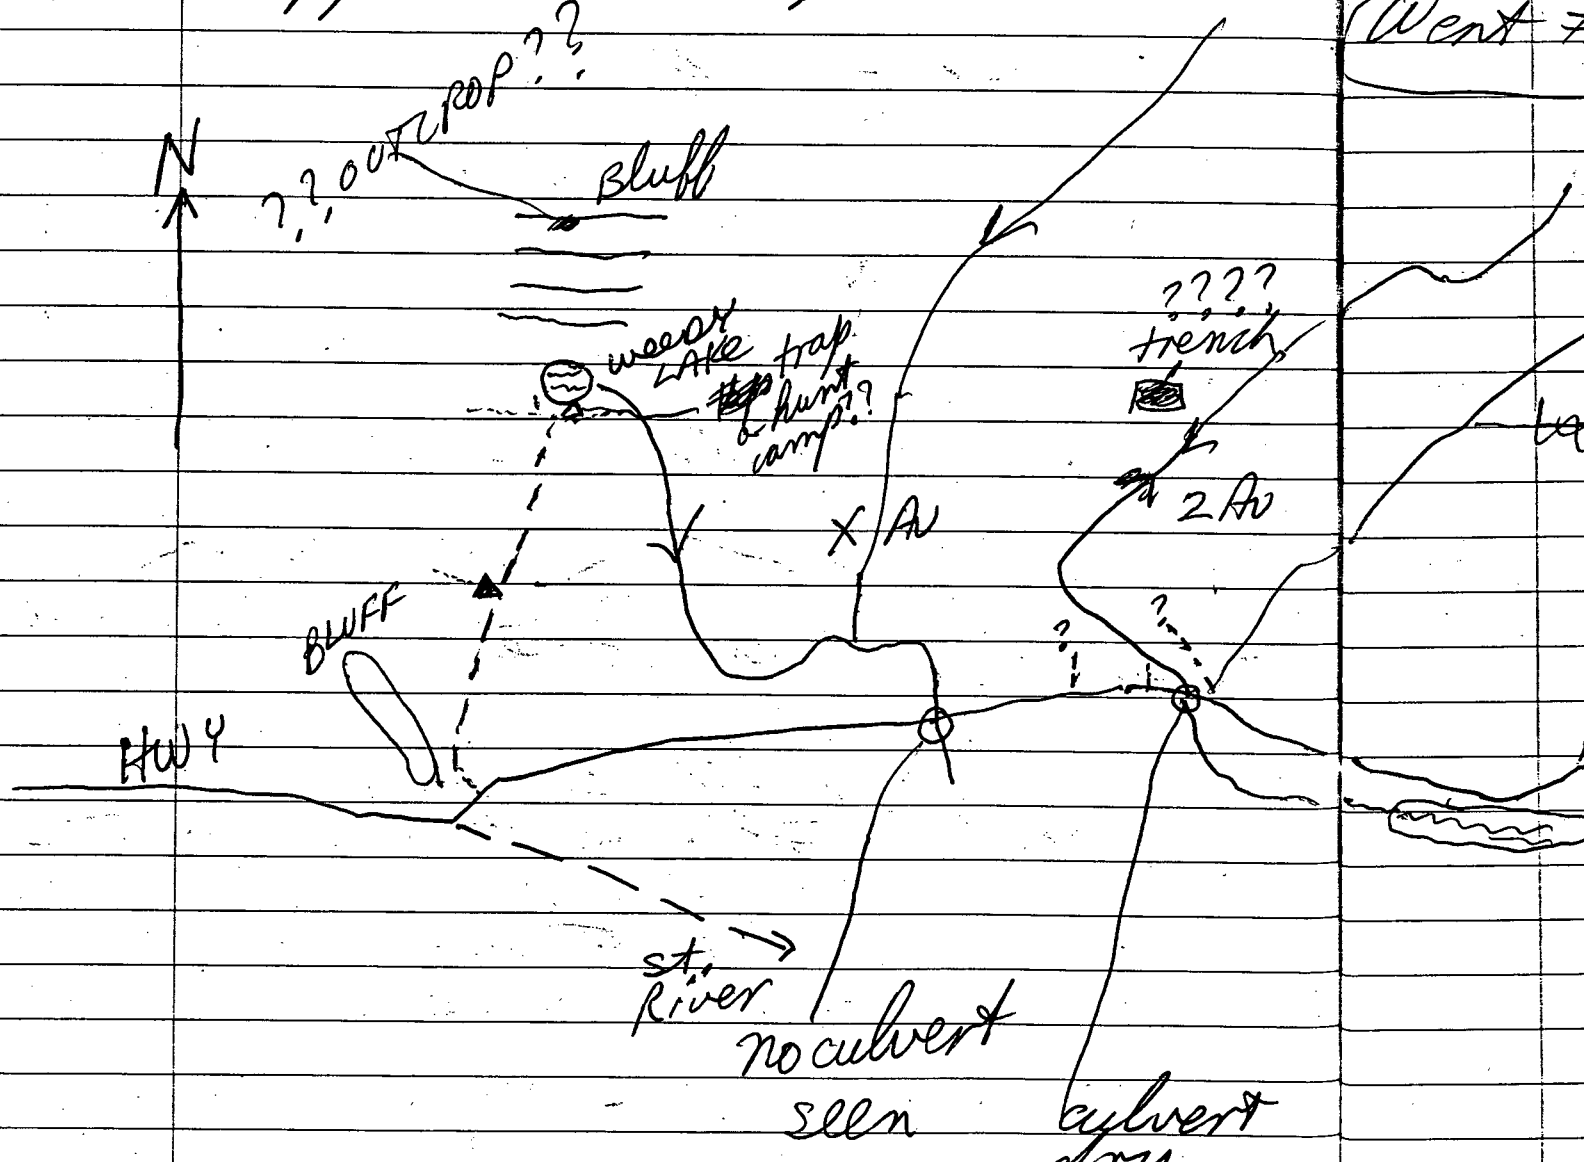 (Went
N
?? OUTCROP??
Bluff
????
trench
weedy
LAKE
trap
& hunt
camp??
X AU
2 AU
?
?
BLUFF
HWY
st.
River
no culvert
seen
culvert
dry